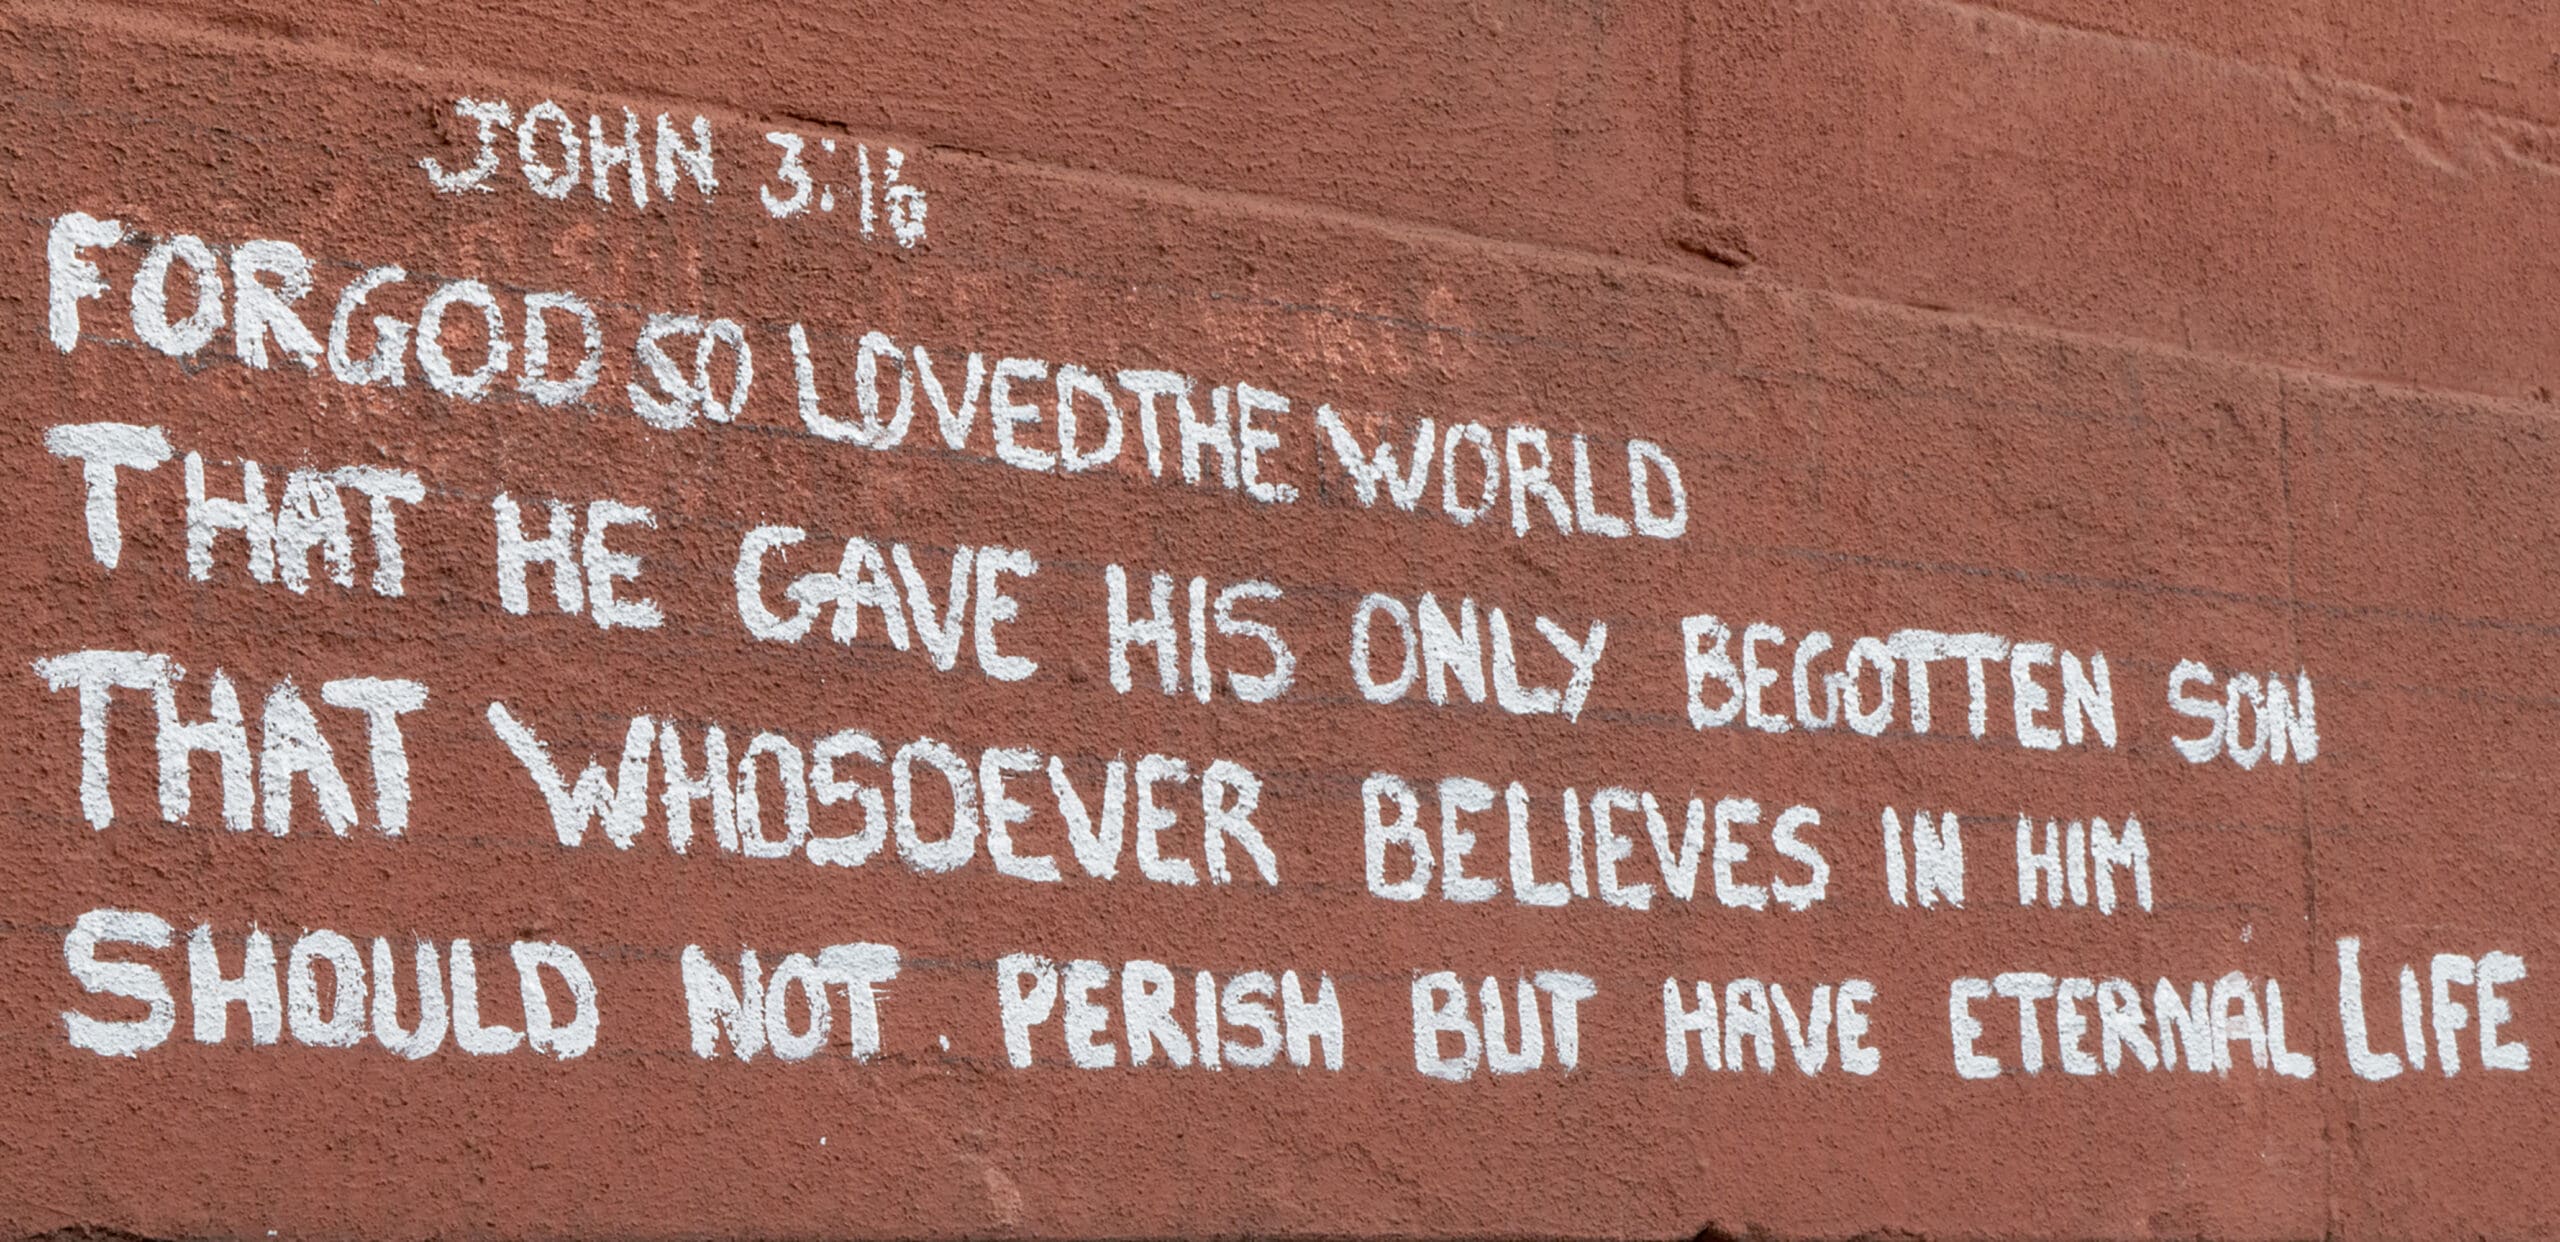 JOHN 3:16
FOR GOD SO LOVED THE WORLD
THAT HE GAVE HIS ONLY BEGOTTEN SON
THAT WHOSOEVER BELIEVES IN HIM
SHOULD NOT . PERISH BUT HAVE ETERNAL LIFE